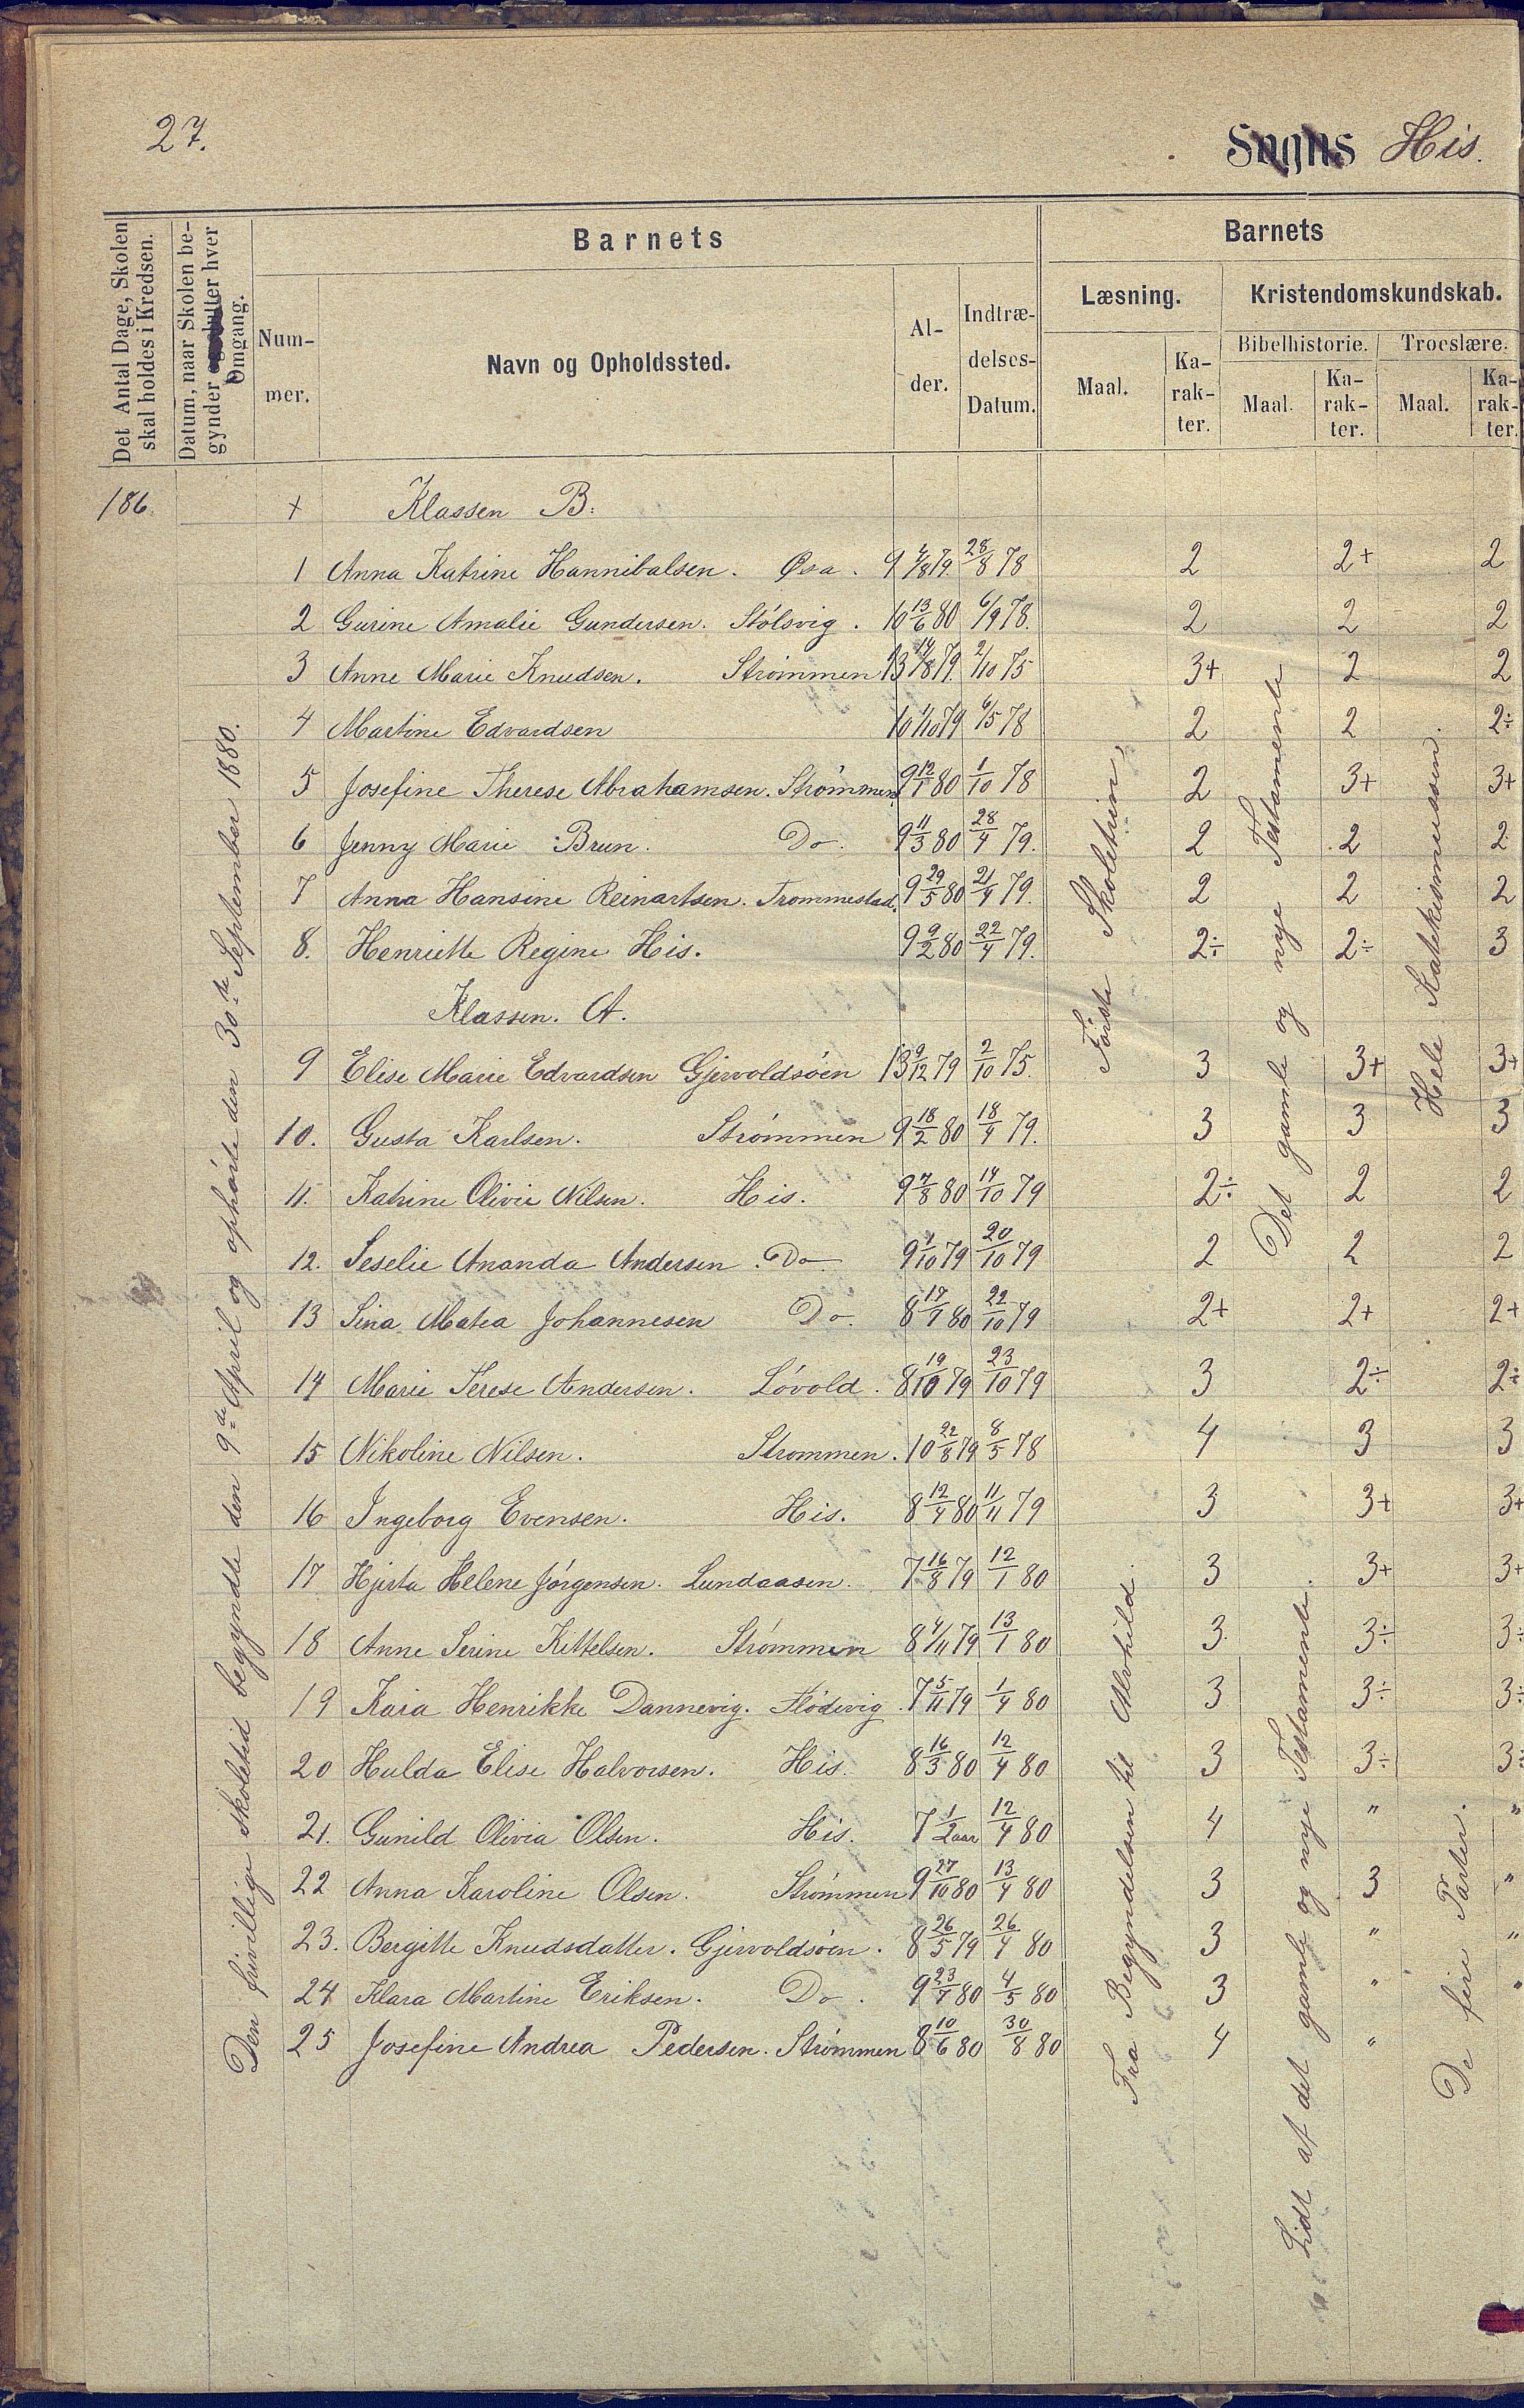 27.
Sogns His.
Det Antal Dage, Skolen
skal holdes i Kredsen.
Datum, naar Skolen be-
gynder hver
Omgang.
Barnets
Num-
mer.
Navn og Opholdssted.
Al-
der.
Indtræ-
delses-
Datum.
Barnets
Læsning.
Maal.
Ka-
rak-
ter.
Kristendomskundskab.
Bibelhistorie.
Maal.
Ka-
rak-
ter.
Troeslære.
Maal.
Ka-
rak-
ter.
186. + Klassen B.
1 Anna Katrine Hannibalsen. Øsa. 9 4/8 79. 28/8 78 2 2+ 2
2 Gurine Amalie Gundersen. Stólsvig. 10 13/6 80 6/9 78. 2 2 2
3 Anne Marie Knudsen. Strómmen 13 14/8 79. 2/10 75 3+ 2 2
4 Martine Edvardsen 10 1/10 79 6/5 78 2 2 2÷
5 Josefine Therese Abrahamsen. Strómmen. 9 12/1 80 1/10 78 2 3+ 3+
6 Jenny Marie Brun. Do. 9 11/3 80 28/4 79. 2 2 2
7 Anna Hansine Reinartsen. Trommestad. 9 29/5 80 21/4 79. 2 2 2
8. Henriette Regine His. 9 9/2 80 22/4 79. 2÷ 2÷ 3
Klassen. A.
9 Elise Marie Edvardsen Gjervoldsóen 13 9/12 79 2/10 75. 3 3+ 3+
10. Gusta Karlsen. Strómmen 9 18/2 80 18/4 79. 3 3 3
11. Katrine Olivie Nilsen. His. 9 7/8 80 14/10 79 2÷ 2 2
12. Seselie Ananda Andersen. Do 9 7/10 79 20/10 79 2 2 2
13 Sina Matea Johannesen Do. 8 17/9 80 22/10 79 2+ 2+ 2+
14 Marie Terese Andersen. Lóvold. 8 19/10 79 23/10 79 3 2÷ 2÷
15 Nikoline Nilsen. Strommen. 10 22/8 79 8/5 78 4 3 3
16 Ingeborg Evensen. His. 8 12/4 80 11/11 79 3 3+ 3+
17 Hjerta Helene Jórgensen. Lundaasen. 7 16/8 79 12/1 80 3 3+ 3+
18 Anne Serine Kittelsen. Strómmen 8 4/11 79 13/1 80 3. 3÷ 3÷
19 Kaia Henrikke Dannevig. Flódevig. 7 5/11 79 1/4 80 3 3÷ 3÷
20 Hulda Elise Halvorsen. His. 8 16/3 80 12/4 80 3 3÷ 3÷
21. Gunild Olivia Olsen. His. 7 1/2 aar 12/4 80 4 " "
22 Anna Karoline Olsen. Strómmen 9 27/10 80 13/4 80 3 3 "
23. Bergitte Knudsdatter. Gjervoldsóen. 8 26/5 79 26/4 80 3 " "
24 Klara Martine Eriksen. Do. 9 23/7 80 4/5 80 3 " "
25 Josefine Andrea Pedersen. Strómmen 8 10/6 80 30/8 80 4 "
Den frivillige skoletid begyndte den 9de April og ophórte den 30te September 1880.
Fórste Skoletrin,
Fra Begyndelsen til Alvhild.
Det gamle og nye Testamente
Lidt af det gamle og nye Testamente.
Hele Katekismussen.
De fire Parter.